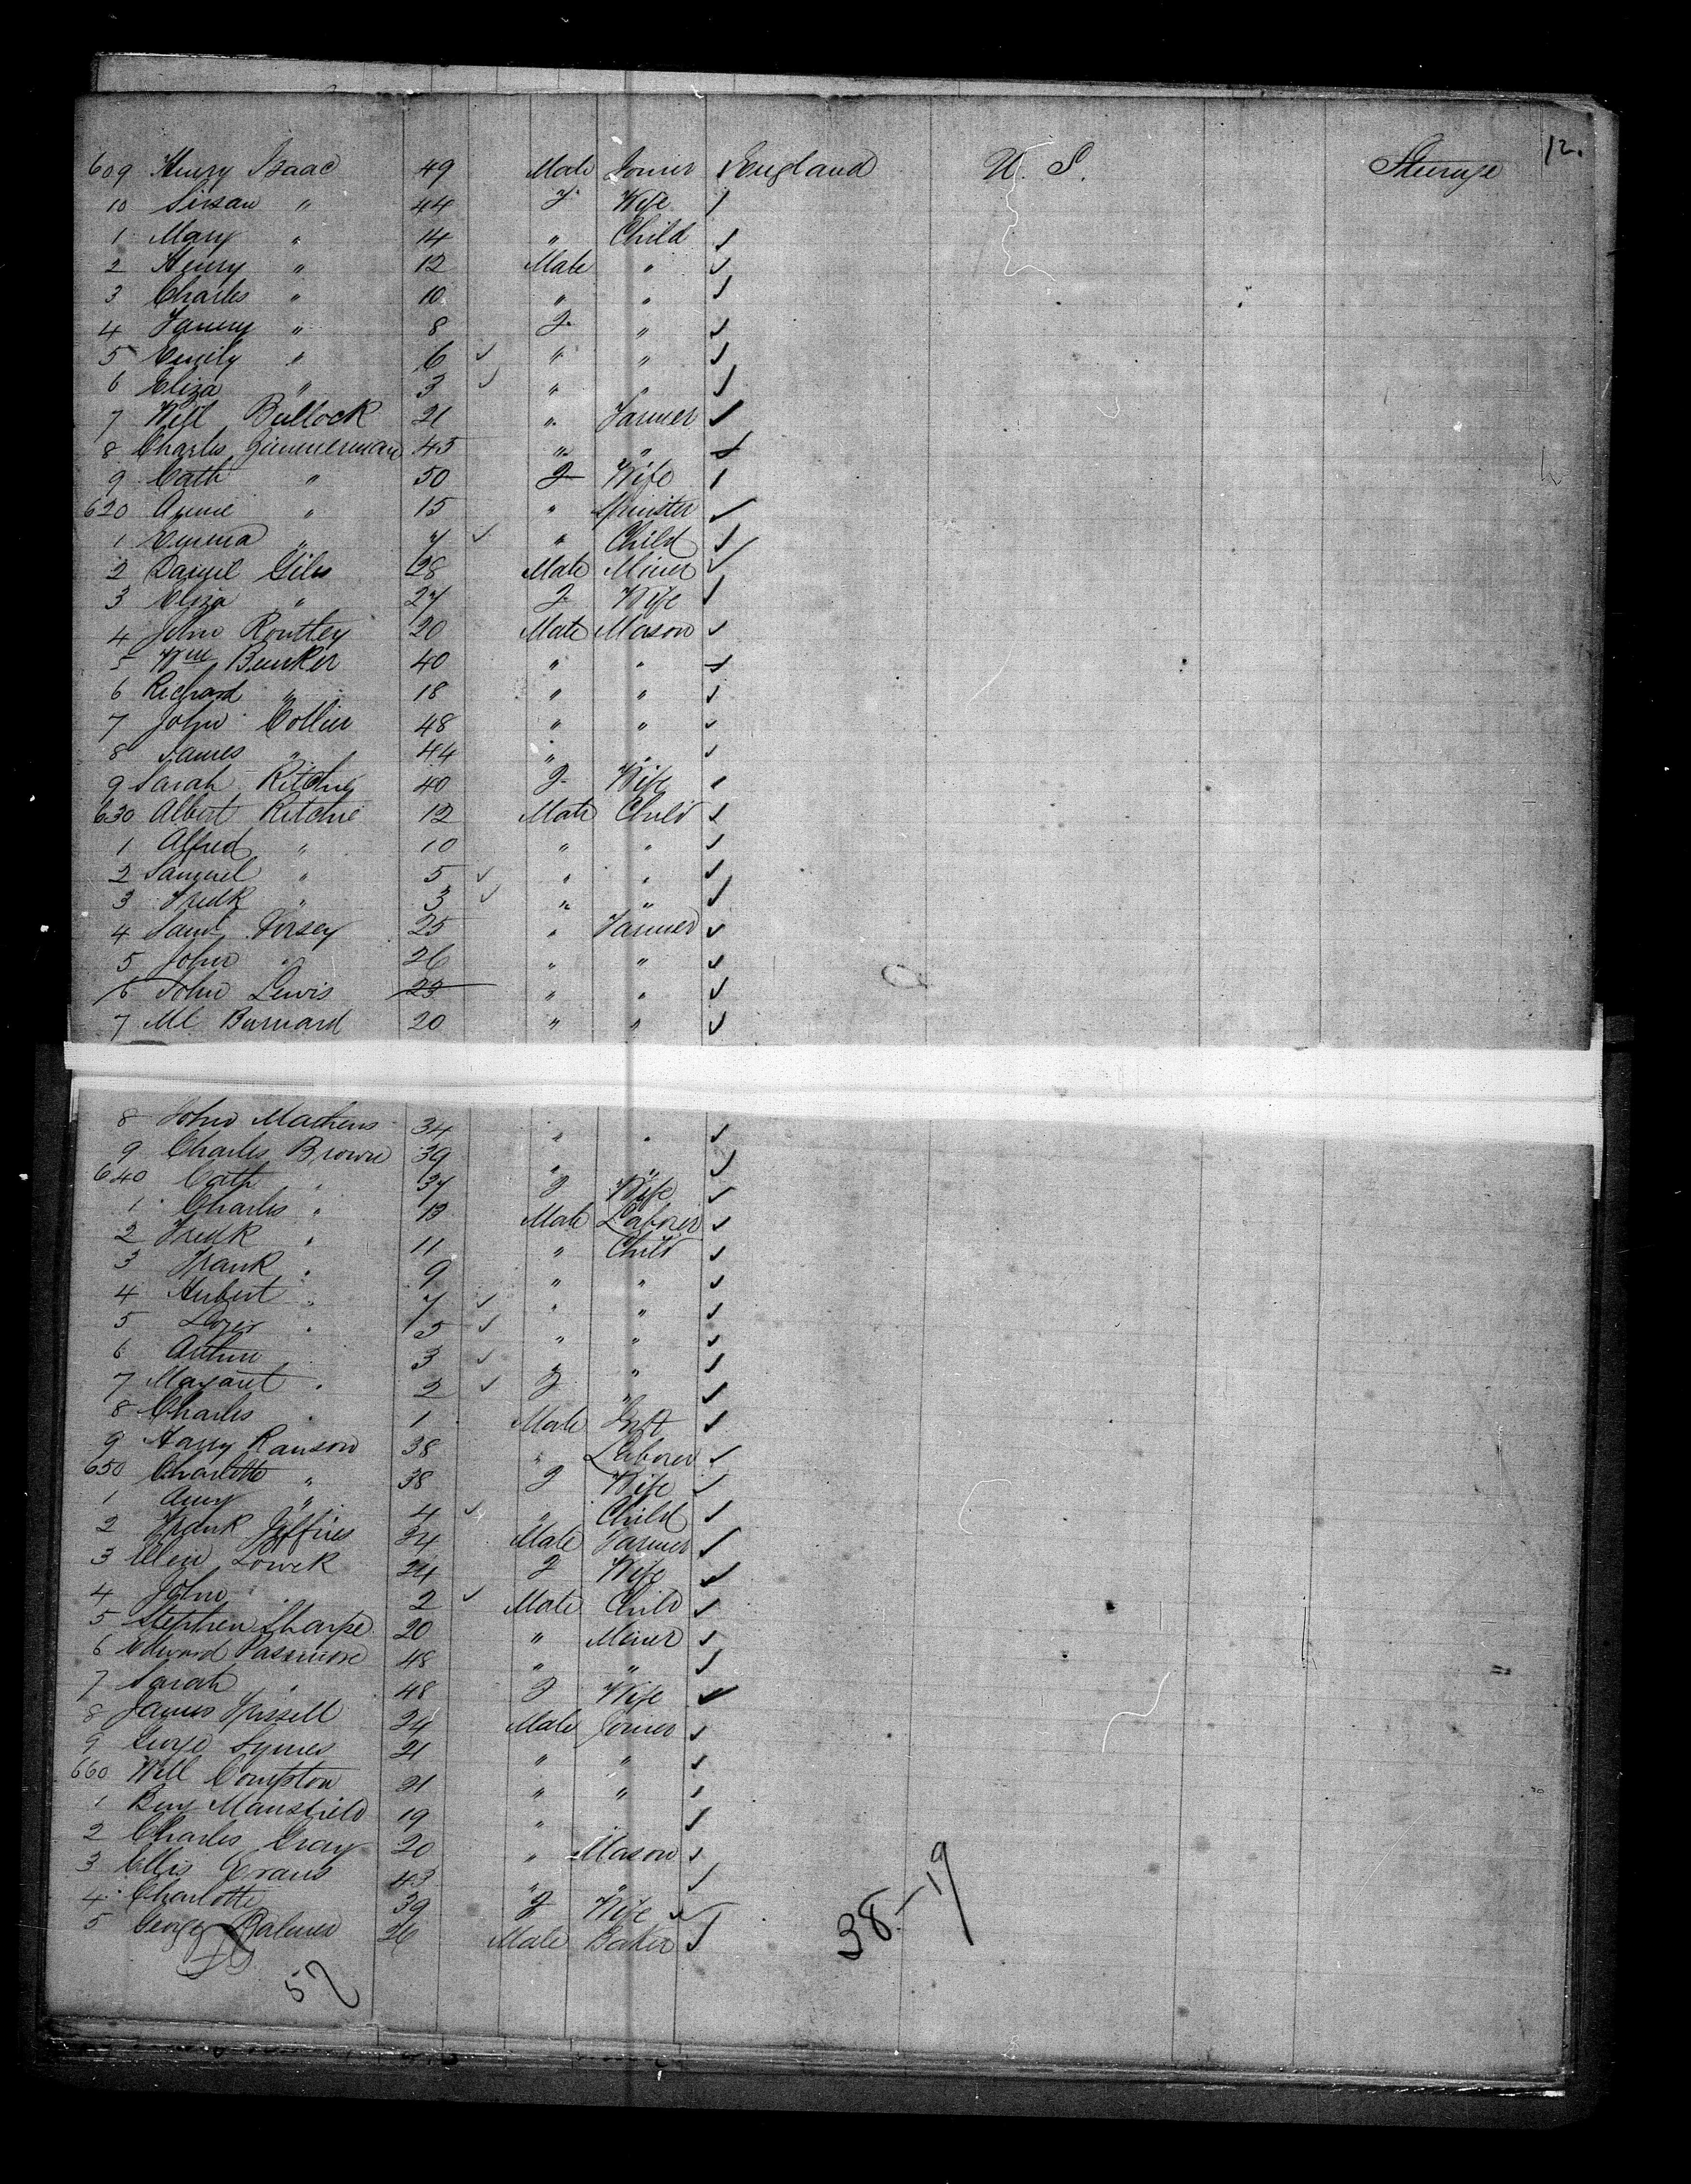 12.
609 Henry Isaac 49 Male Joiner England U. S. Steerage
10 Susan " 44 F Wife
1 Mary " 14 " Child
2 Henry " 12 Male "
3 Charles " 10 " "
4 Fanny " 8 F "
5 Emily " 6 " "
6 Eliza " 3 " "
7 Will Bullock 21 " Farmer
8 Charles Zimmerman 45 " "
9 Cath " 50 F Wife
620 Annie " 15 " Spinster
1 Emma " 7 " Child
2 Daniel Giles 28 Male Miner
3 Eliza " 27 F Wife
4 John Routley 20 Male Mason
5 Wm Bunker 40 " "
6 Richard " 18 " "
7 John Collier 48 " "
8 James " 44 " "
9 Sarah Ritchie 40 F Wife
630 Albert Ritchie 12 Male Child
1 Alfred " 10 " "
2 Samuel " 5 " "
3 Fredk " 3 " "
4 Saml 25 " Farmer
5 John " 26 " "
6 John Lewis 23 " "
7 Ml Barnard 20 " "
8 John Mathews 34 " "
9 Charles Brown 39 "
640 Cath " 37 F Wife
1 Charles " 13 Male Laborer
2 Fredk " 11 " Child
3 Frank " 9 " "
4 Herbert " 7 " "
5 " 5 " "
6 Arthur 3 "
7 Magaret " 2 F "
8 Charles " 1 Male Inft
9 Harry Ranson 38 " Laborer
650 Charlotte " 38 F Wife
1 Amy " 4 " Child
2 Frank Jeffries 34 Male Farmer
3 Ellen 24 F Wife
4 John " 2 Male Child
5 Stephen Sharpe 20 " Miner
6 Edward Passmore 48 " "
7 Sarah " 48 F Wife
8 James 24 Male Joiner
9 George Symes 21 " "
660 Will Compton 21 " "
1 Benj Mansfield 19 "
2 Charles Gray 20 " Mason
3 Ellis Evans 43 " "
4 Charlotte 39 F Wife
5 George Palmer 26 Male Baker
57
38-19